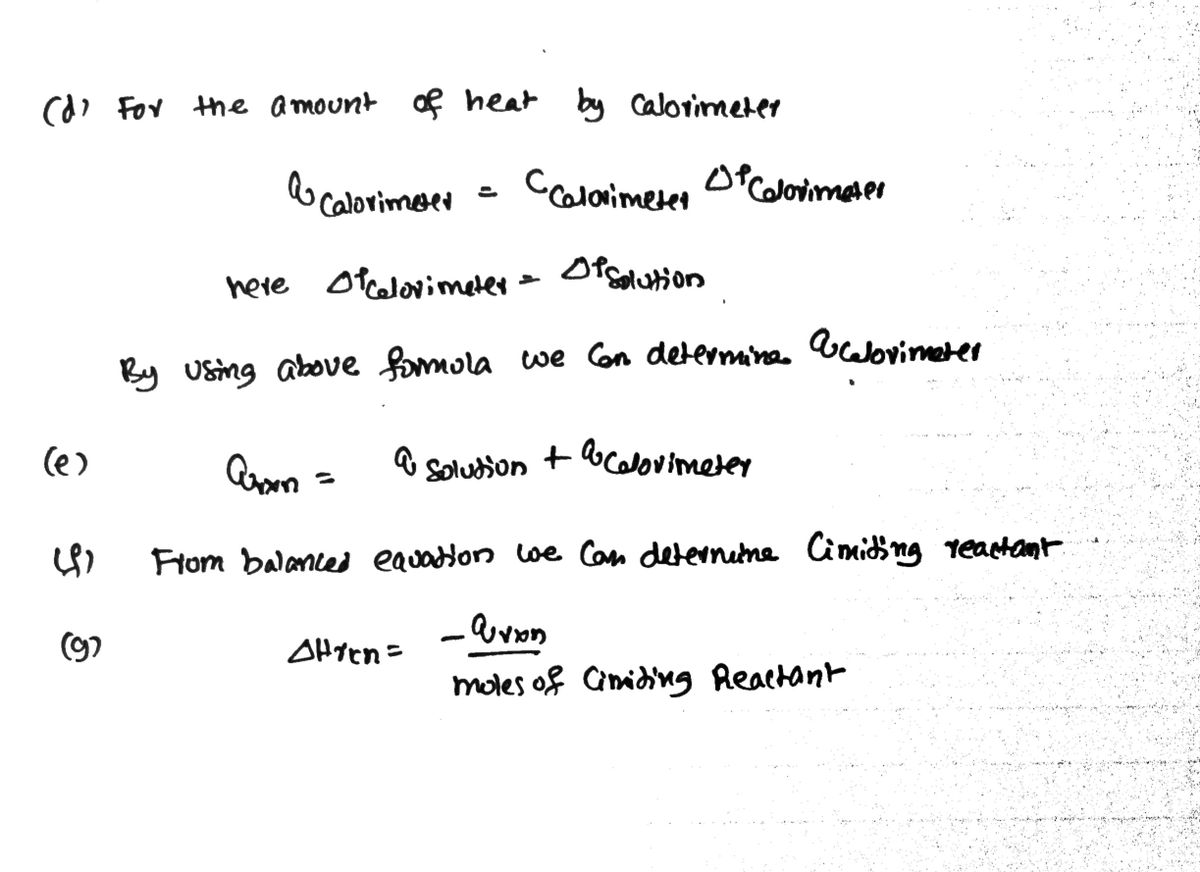 (d) For the amount of heat by Calorimeter
q Calorimeter = C Calorimeter Δt Calorimeter
here Δt Calorimeter = Δt Solution
By using above formula we Can determine q Calorimeter
(e) q rxn = q Solution + q Calorimeter
(f) From balanced equation we Can determine Limiting reactant
(g) ΔH rxn = - q rxn
moles of Limiting Reactant